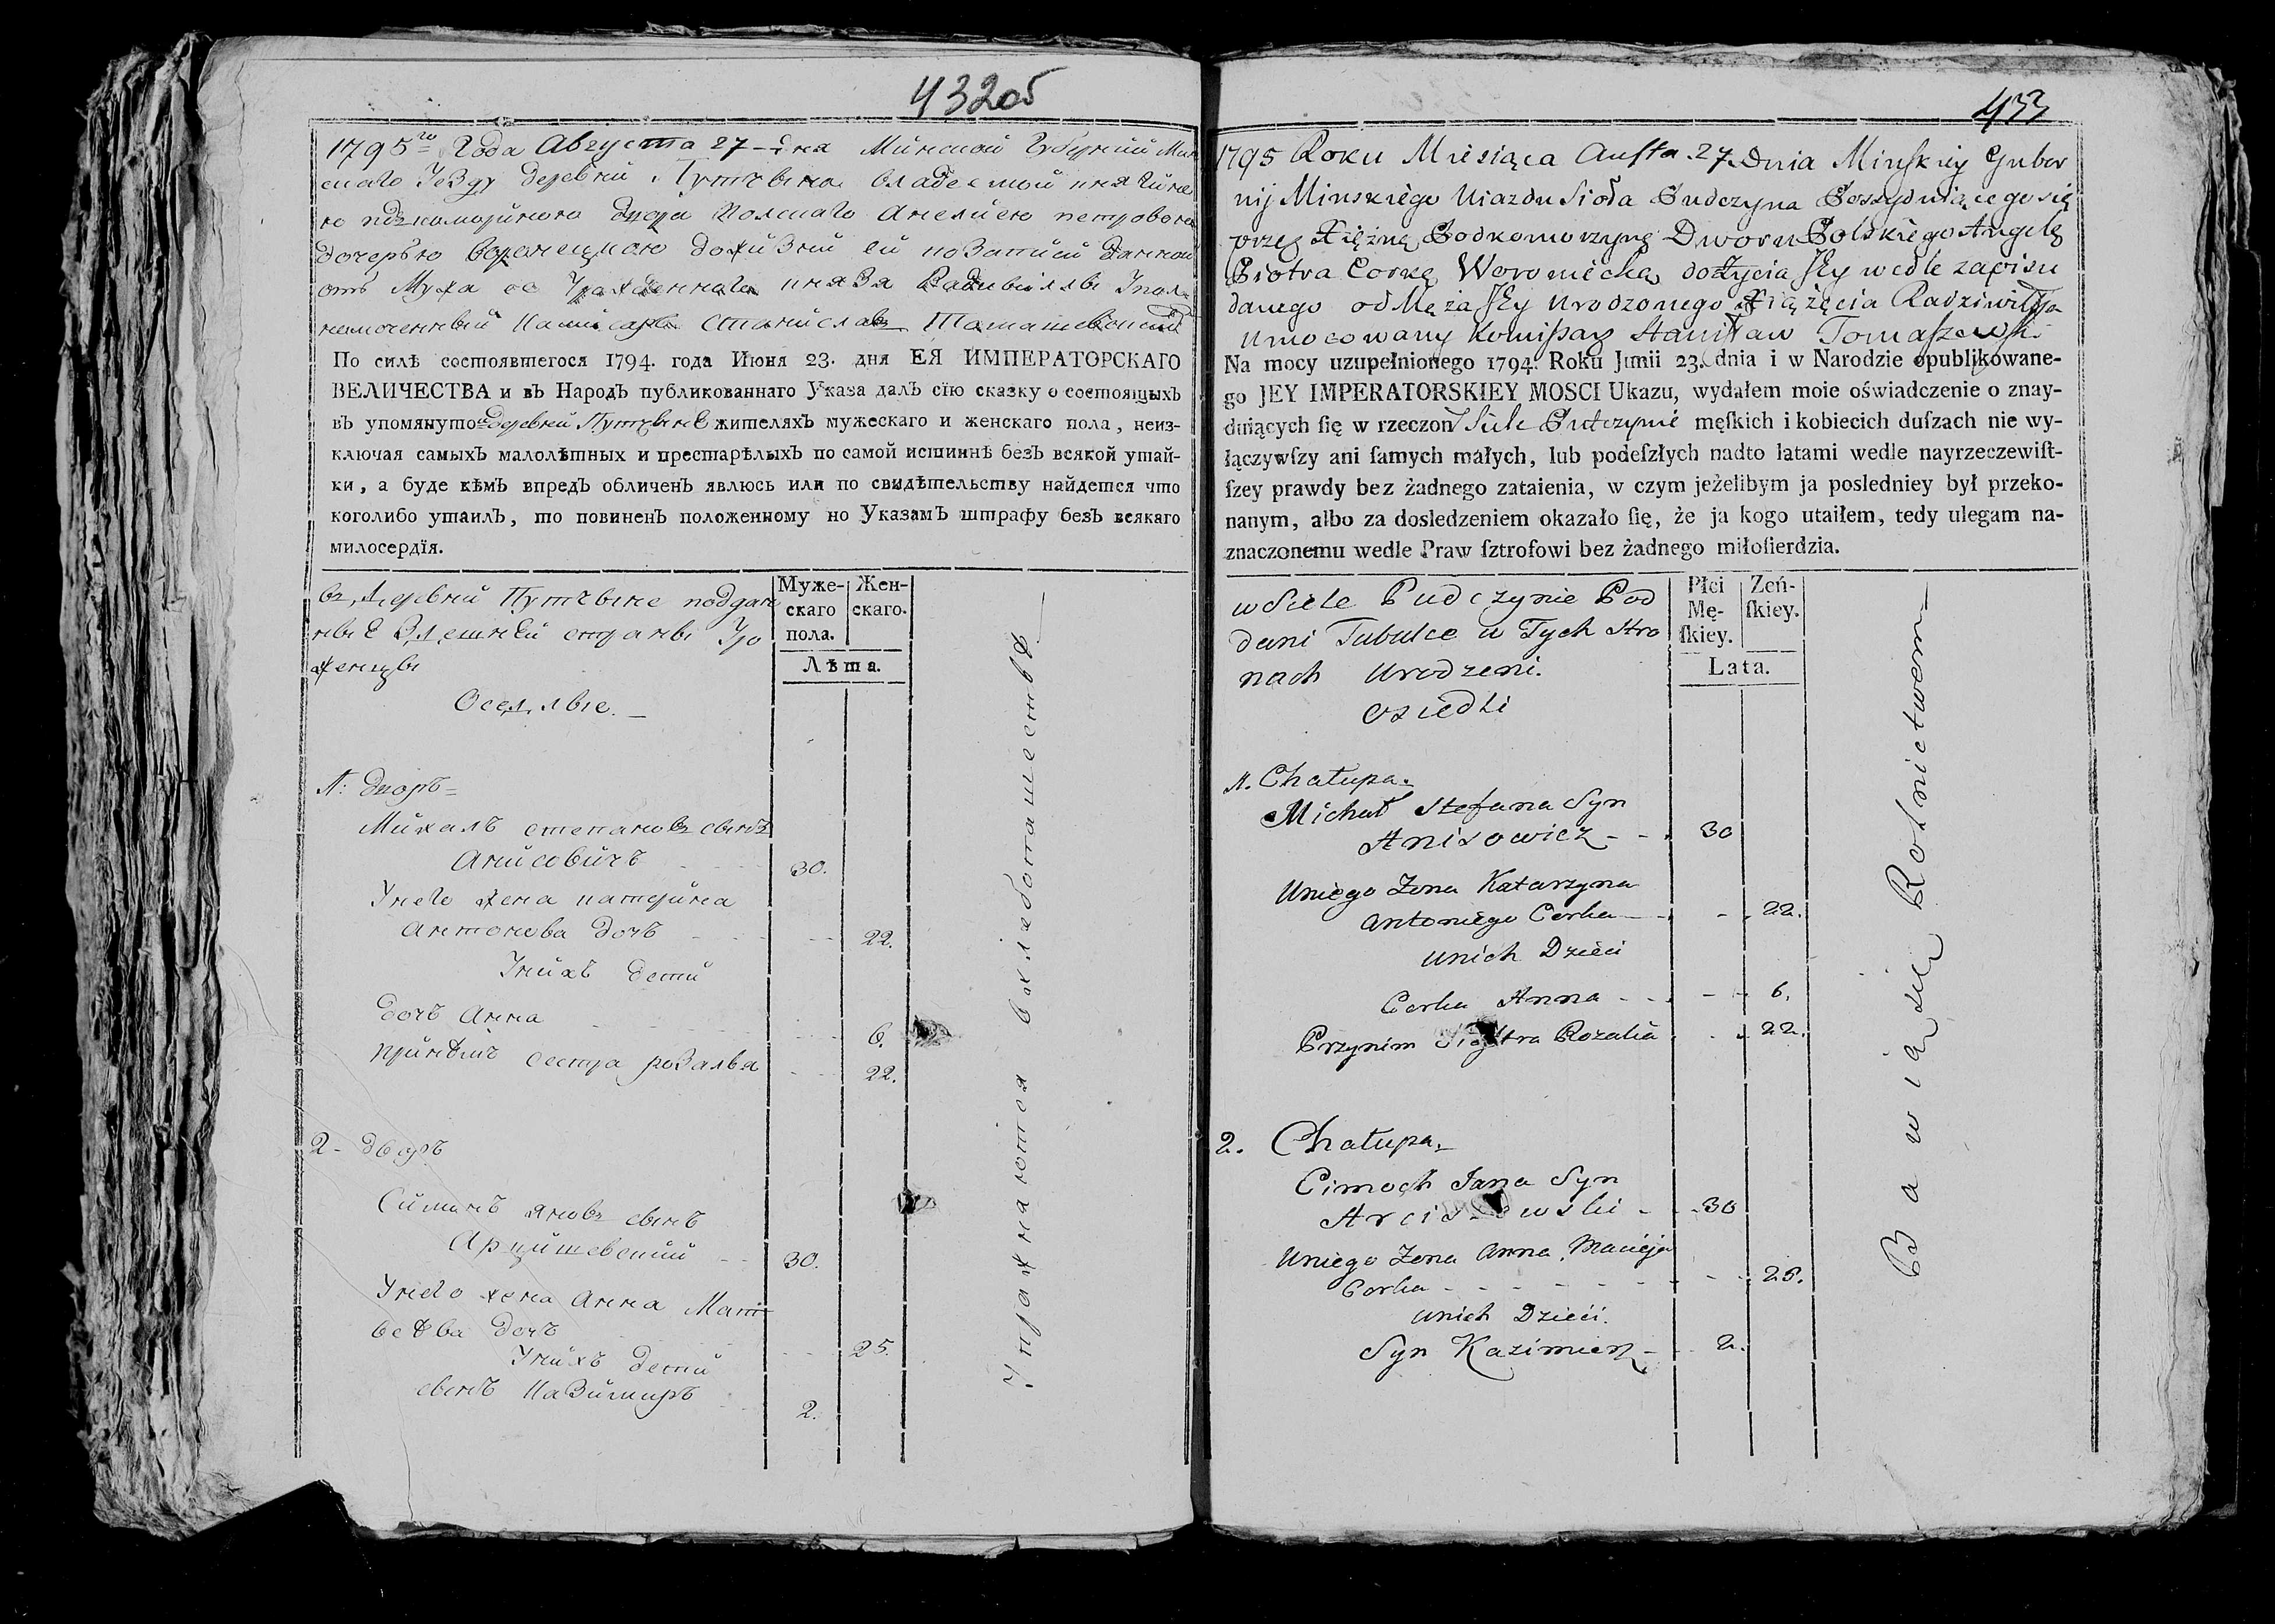 432об
1795го Года Августа 27 дня Минской Губернии Мин
скаго Уезду деревни Путчина владеемой княгине
ю подкомориною двора Полскаго Анелиею петровою
дочерью Воронецкою дожизни ей по записи данной
отъ Мужа ее Урожденнаго князя Радивиллы Упол
номоченный Коммисаръ Станиславъ Томашевский
По силѣ состоявшегося 1794. года Июня 23. дня ЕЯ ИМПЕРАТОРСКАГО
ВЕЛИЧЕСТВА и въ Народъ публикованнаго Указа далъ сїю сказку о состоящыхъ
въ упомянуто деревни Путчине жителяхъ мужескаго и женскаго пола, неиз-
ключая самыхъ малолѣтныхъ и престарѣлыхъ по самой истиннѣ безъ всякой утай-
ки, а буде кѣмъ впредъ обличенъ явлюсь или по свидѣтельству найдется что
коголибо утаилъ, то повиненъ положенному по Указамъ штрафу безъ всякаго
милосердїя.
въ деревни Путчине поддан
ные здешней страны Уро
женцы
Оседлые.
Муже-
скаго
пола.
Жен-
скаго.
Лѣта.
1: дворъ
Михалъ степановъ сынъ
Анисовичъ 30.
Унего жена катерина
Антонева дочъ 22.
Унихъ дети
дочъ Анна 6.
принемъ сестра розалья 22.
2 - дворъ
Симонъ яновъ сынъ
Арцишевский 30.
Унего жена Анна Мат
веева дочъ 25.
Унихъ дети
сынъ Казимиръ 2.
Упражнаютоя вхлебопашестве
433
1795 Roku Miesiąca Austa 27 Dnia Minskiey Guber
nij Minskiego Uiazdu Sioła Pudczyna Possyduiącego się
przez Xiężnę Podkomorzynę Dworu Polskiego Angelę
Piotra Corkę Woroniecką dożycia Jey wedle zapisu
danego od Męża Jey urodzonego Xiążęcia Radziwiłła
Umocowany Komissarz Stanisław Tomaszewski
Na mocy uzupełnionego 1794. Roku Junii 23. dnia i w Narodzie opublikowane-
go JEY IMPERATORSKIEY MOSCI Ukazu, wydałem moie oświadczenie o znay-
duiących ſię w rzeczon Siele Putczynie męſkich i kobiecich duſzach nie wy-
łączywſzy ani ſamych małych, lub podeſzłych nadto latami wedle nayrzeczewiſt-
ſzey prawdy bez żadnego zataienia, w czym jeżelibym ja posledniey był przeko-
nanym, albo za dosledzeniem okazało ſię, że ja kogo utaiłem, tedy ulegam na-
znaczonemu wedle Praw ſztrofowi bez żadnego miłoſierdzia.
w Siele Pudczynie Pod
dani Tubulce w Tych Stro
nach Urodzeni.
Osiedli
Płci
Mę-
ſkiey.
Zeń-
ſkiey.
Lata.
1. Chałupa.
Michał Stefana Syn
Anisowicz 30
Uniego Zona Katarzyna
Antoniego Corka 22.
Unich Dzieci
Corka Anna 6.
Przynim Siostra Rozalia 22.
2. Chałupa.
Cimoch Jana Syn
Arciszewski 30
Uniego Zona Anna Macieja
Corka 25.
Unich Dzieci.
Syn Kazimierz 2.
Bawią się Rolnictwem